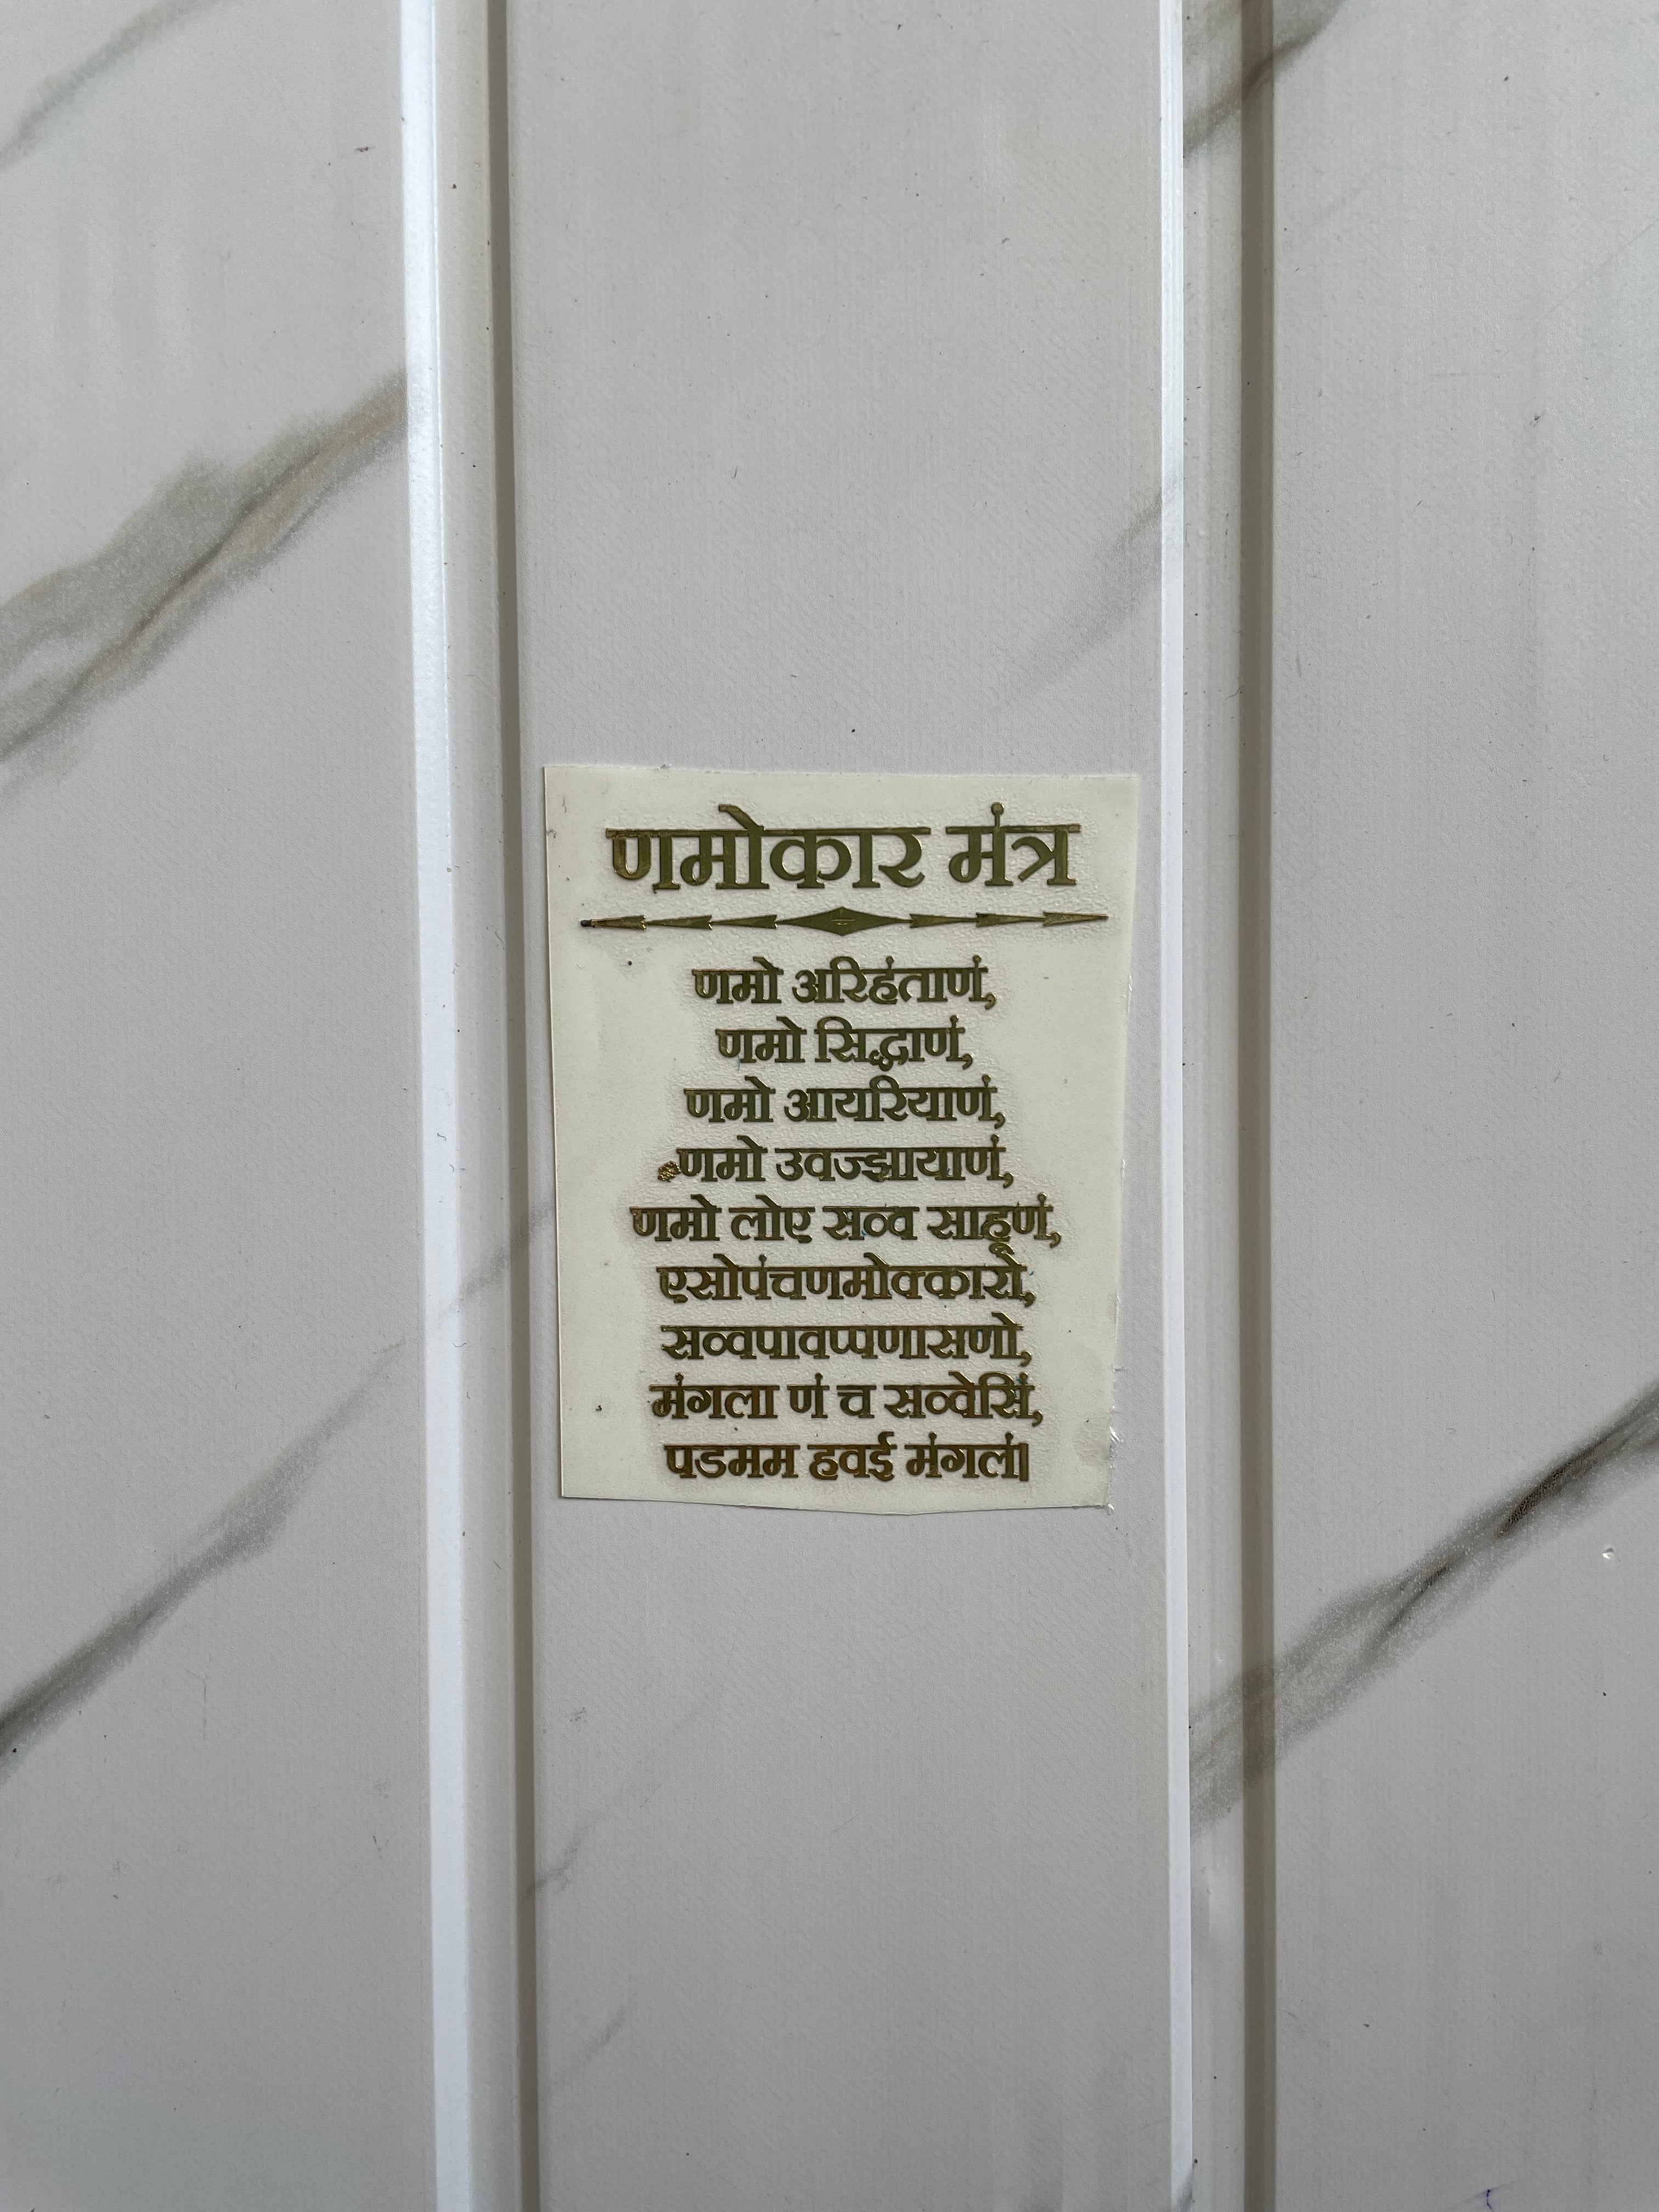 णमोकार मंत्र
णमो अरिहंताणं,
णमो सिद्धाणं,
णमो आयरियाणं,
णमो उवज्झायाणं,
णमो लोए सव्व साहूणं,
एसोपंचणमोक्कारो,
सव्वपावप्पणासणो,
मंगला णं च सव्वेसिं,
पडमम हवई मंगलं।